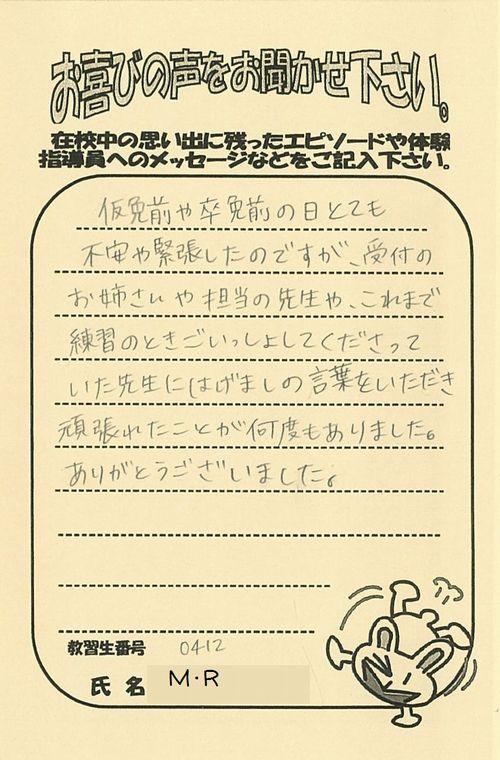 お喜びの声をお聞かせ下さい。
在校中の思い出に残ったエピソードや体験
指導員へのメッセージなどをご記入下さい。
仮免前や卒免前の日とても
不安や緊張したのですが、受付の
お姉さんや担当の先生や、これまで
練習のときごいっしょしてくださって
いた先生にはげましの言葉をいただき
頑張れたことが何度もありました。
ありがとうございました。
教習生番号 0412
氏名 M・R